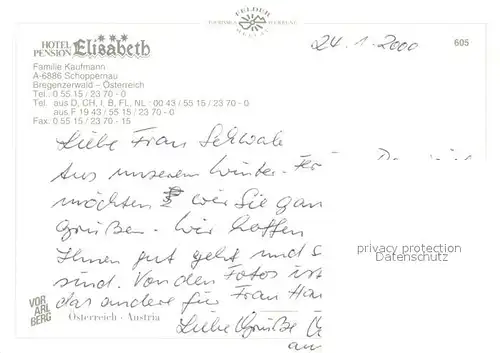 FELDER
24.1.2000
605
HOTEL PENSION Elisabeth
Familie Kaufmann
A-6886 Schoppernau
Bregenzerwald – Österreich
Tel. 0 55 15 / 23 70 - 0
Tel. aus D, CH, I, B, FL, NL : 00 43 / 55 15 / 23 70 - 0
aus F 19 43 / 55 15 / 23 70 - 0
Fax: 0 55 15 / 23 70 - 15
Liebe Frau Schwab
Aus unserem Winter-
möchten wir Sie gan
Grüßen. Wir hoffen
Ihnen gut geht und S
sind. Von den Fotos ist
das andere für Frau Ha
Liebe Grüße
privacy protection
Datenschutz
VOR ARL BERG
Österreich · Austria